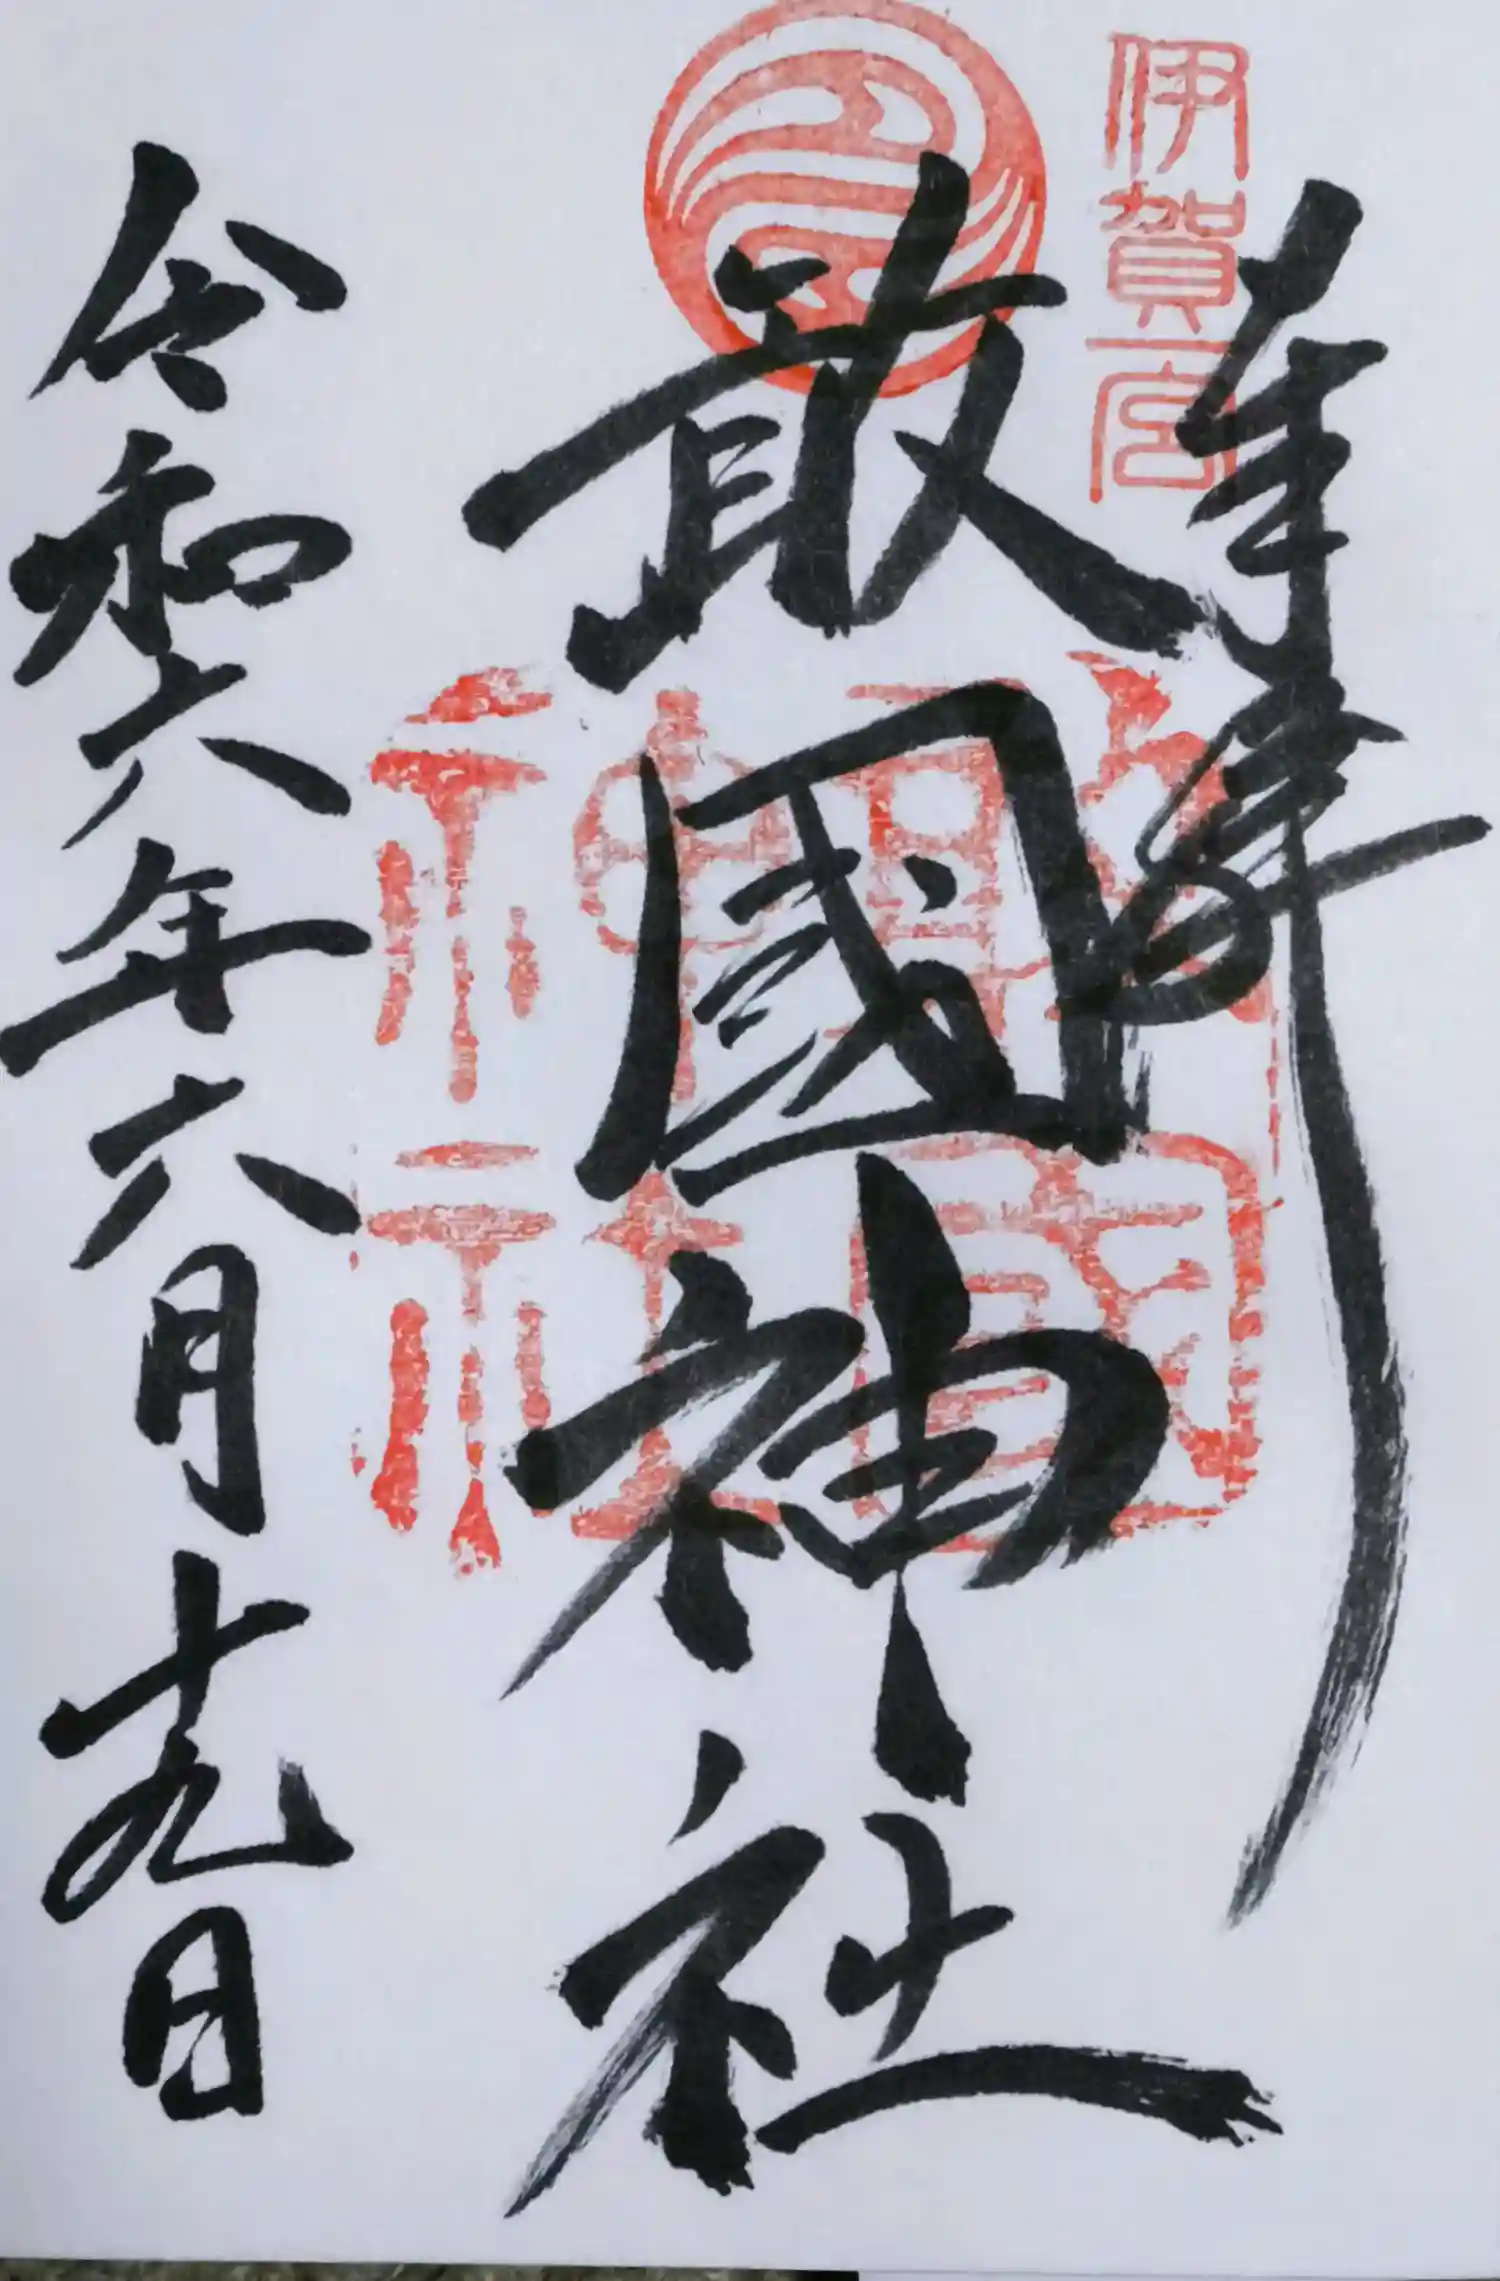 伊賀一宮
奉拝
敢國神社
敢國神社
令和六年六月十九日